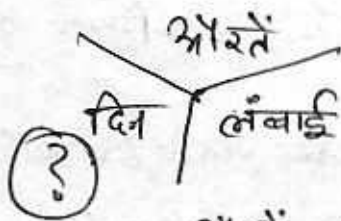 औरतें
दिन लंबाई
?